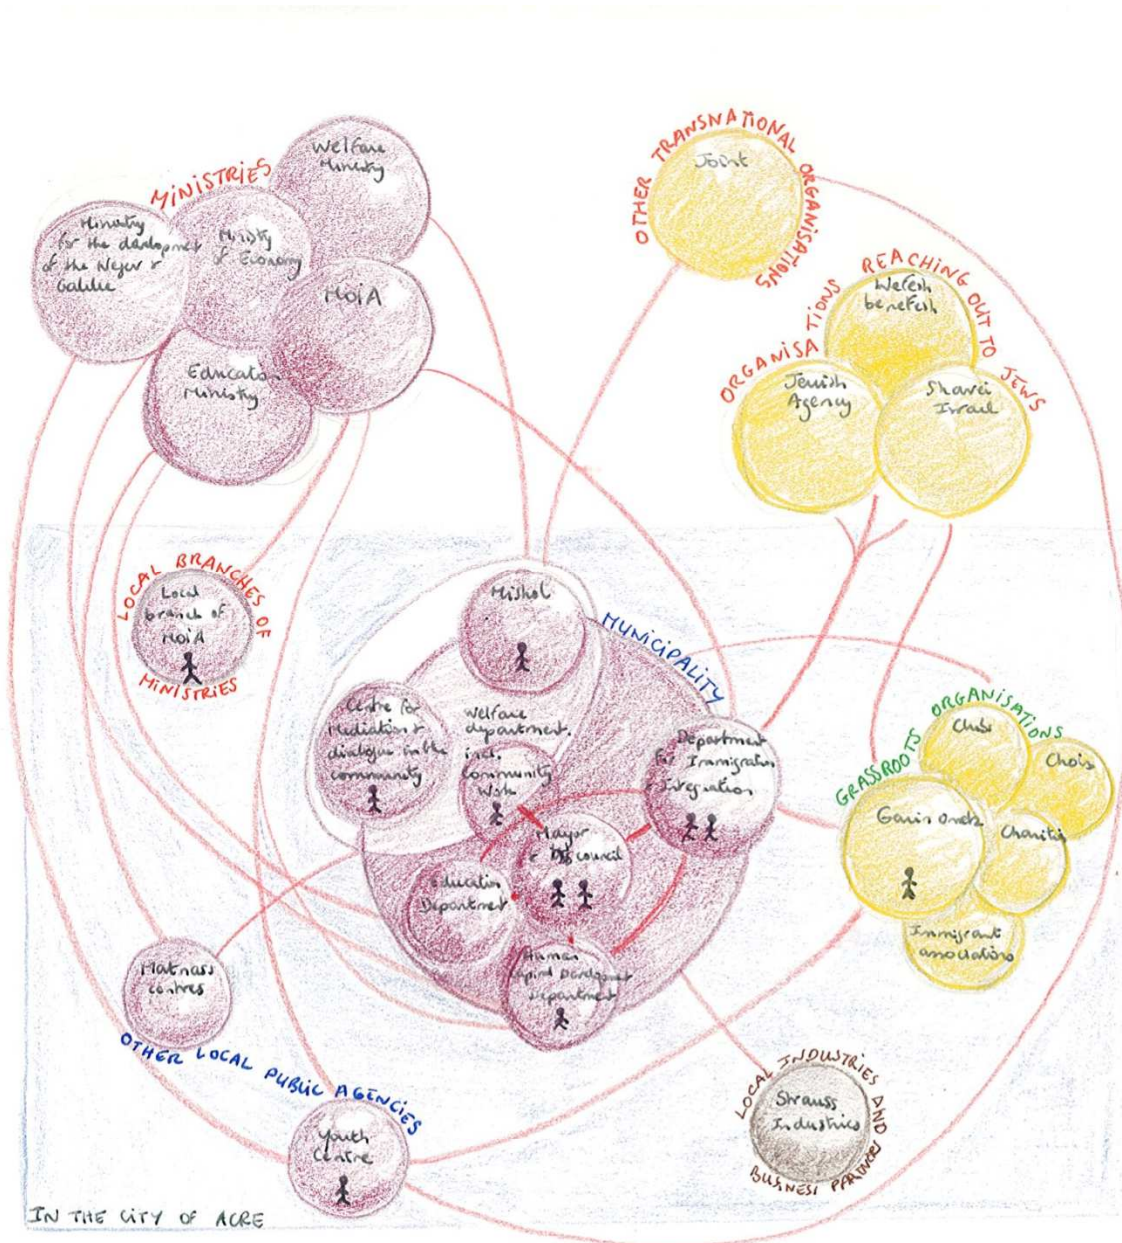 MINISTRIES
Welfare
Ministry
Ministry
for the
of the Negev &
Galilee
Ministry
of Economy
MoiA
Education
Ministry
OTHER TRANSNATIONAL ORGANISATIONS
Joint
ORGANISATIONS REACHING OUT TO JEWS
benefesh
Jewish
Agency
Shavei
Israel
LOCAL BRANCHES OF
MINISTRIES
Local
branch of
MoiA
MUNICIPALITY
Mishol
Centre for
Mediation &
dialogue in the
community
Welfare
department,
incl.
Community
Work
Department
for Immigration
Integration
Mayor
& council
Education
Department
Human
Capital Development
Department
GRASSROOTS ORGANISATIONS
Clubs
Choirs
Charities
Immigrant
associations
OTHER LOCAL PUBLIC AGENCIES
Matnass
centres
Youth
Centre
LOCAL INDUSTRIES AND
BUSINESS PARTNERS
Strauss
Industries
IN THE CITY OF ACRE